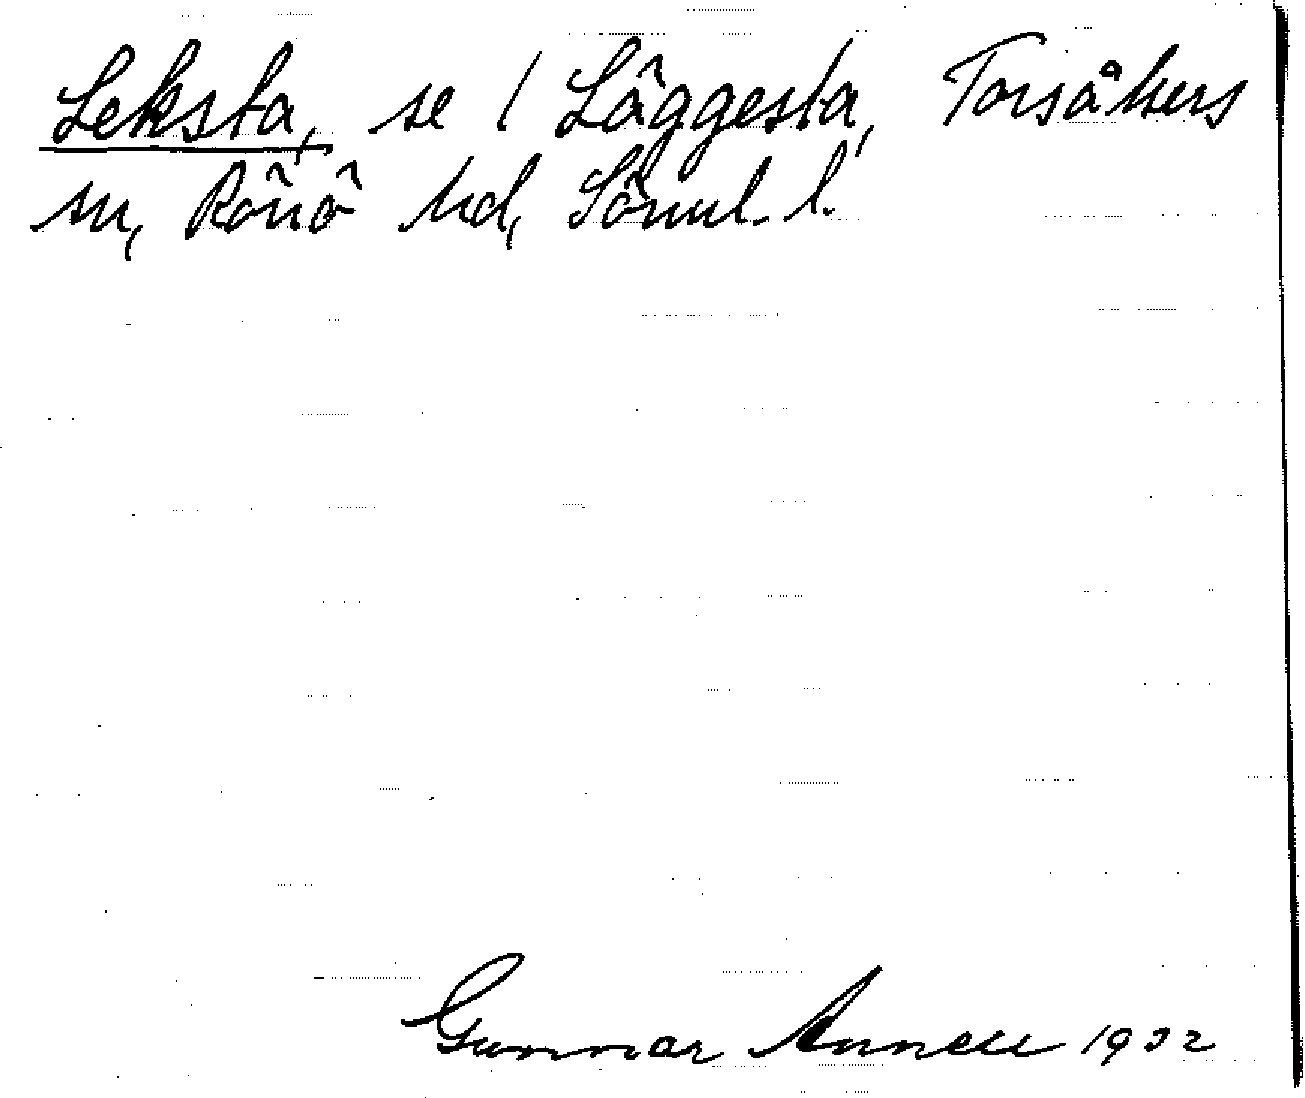 Leksta, se / Läggesta, Torsåkers
sn, Rönö hd, Söml. l.
Gunnar Annell 1932